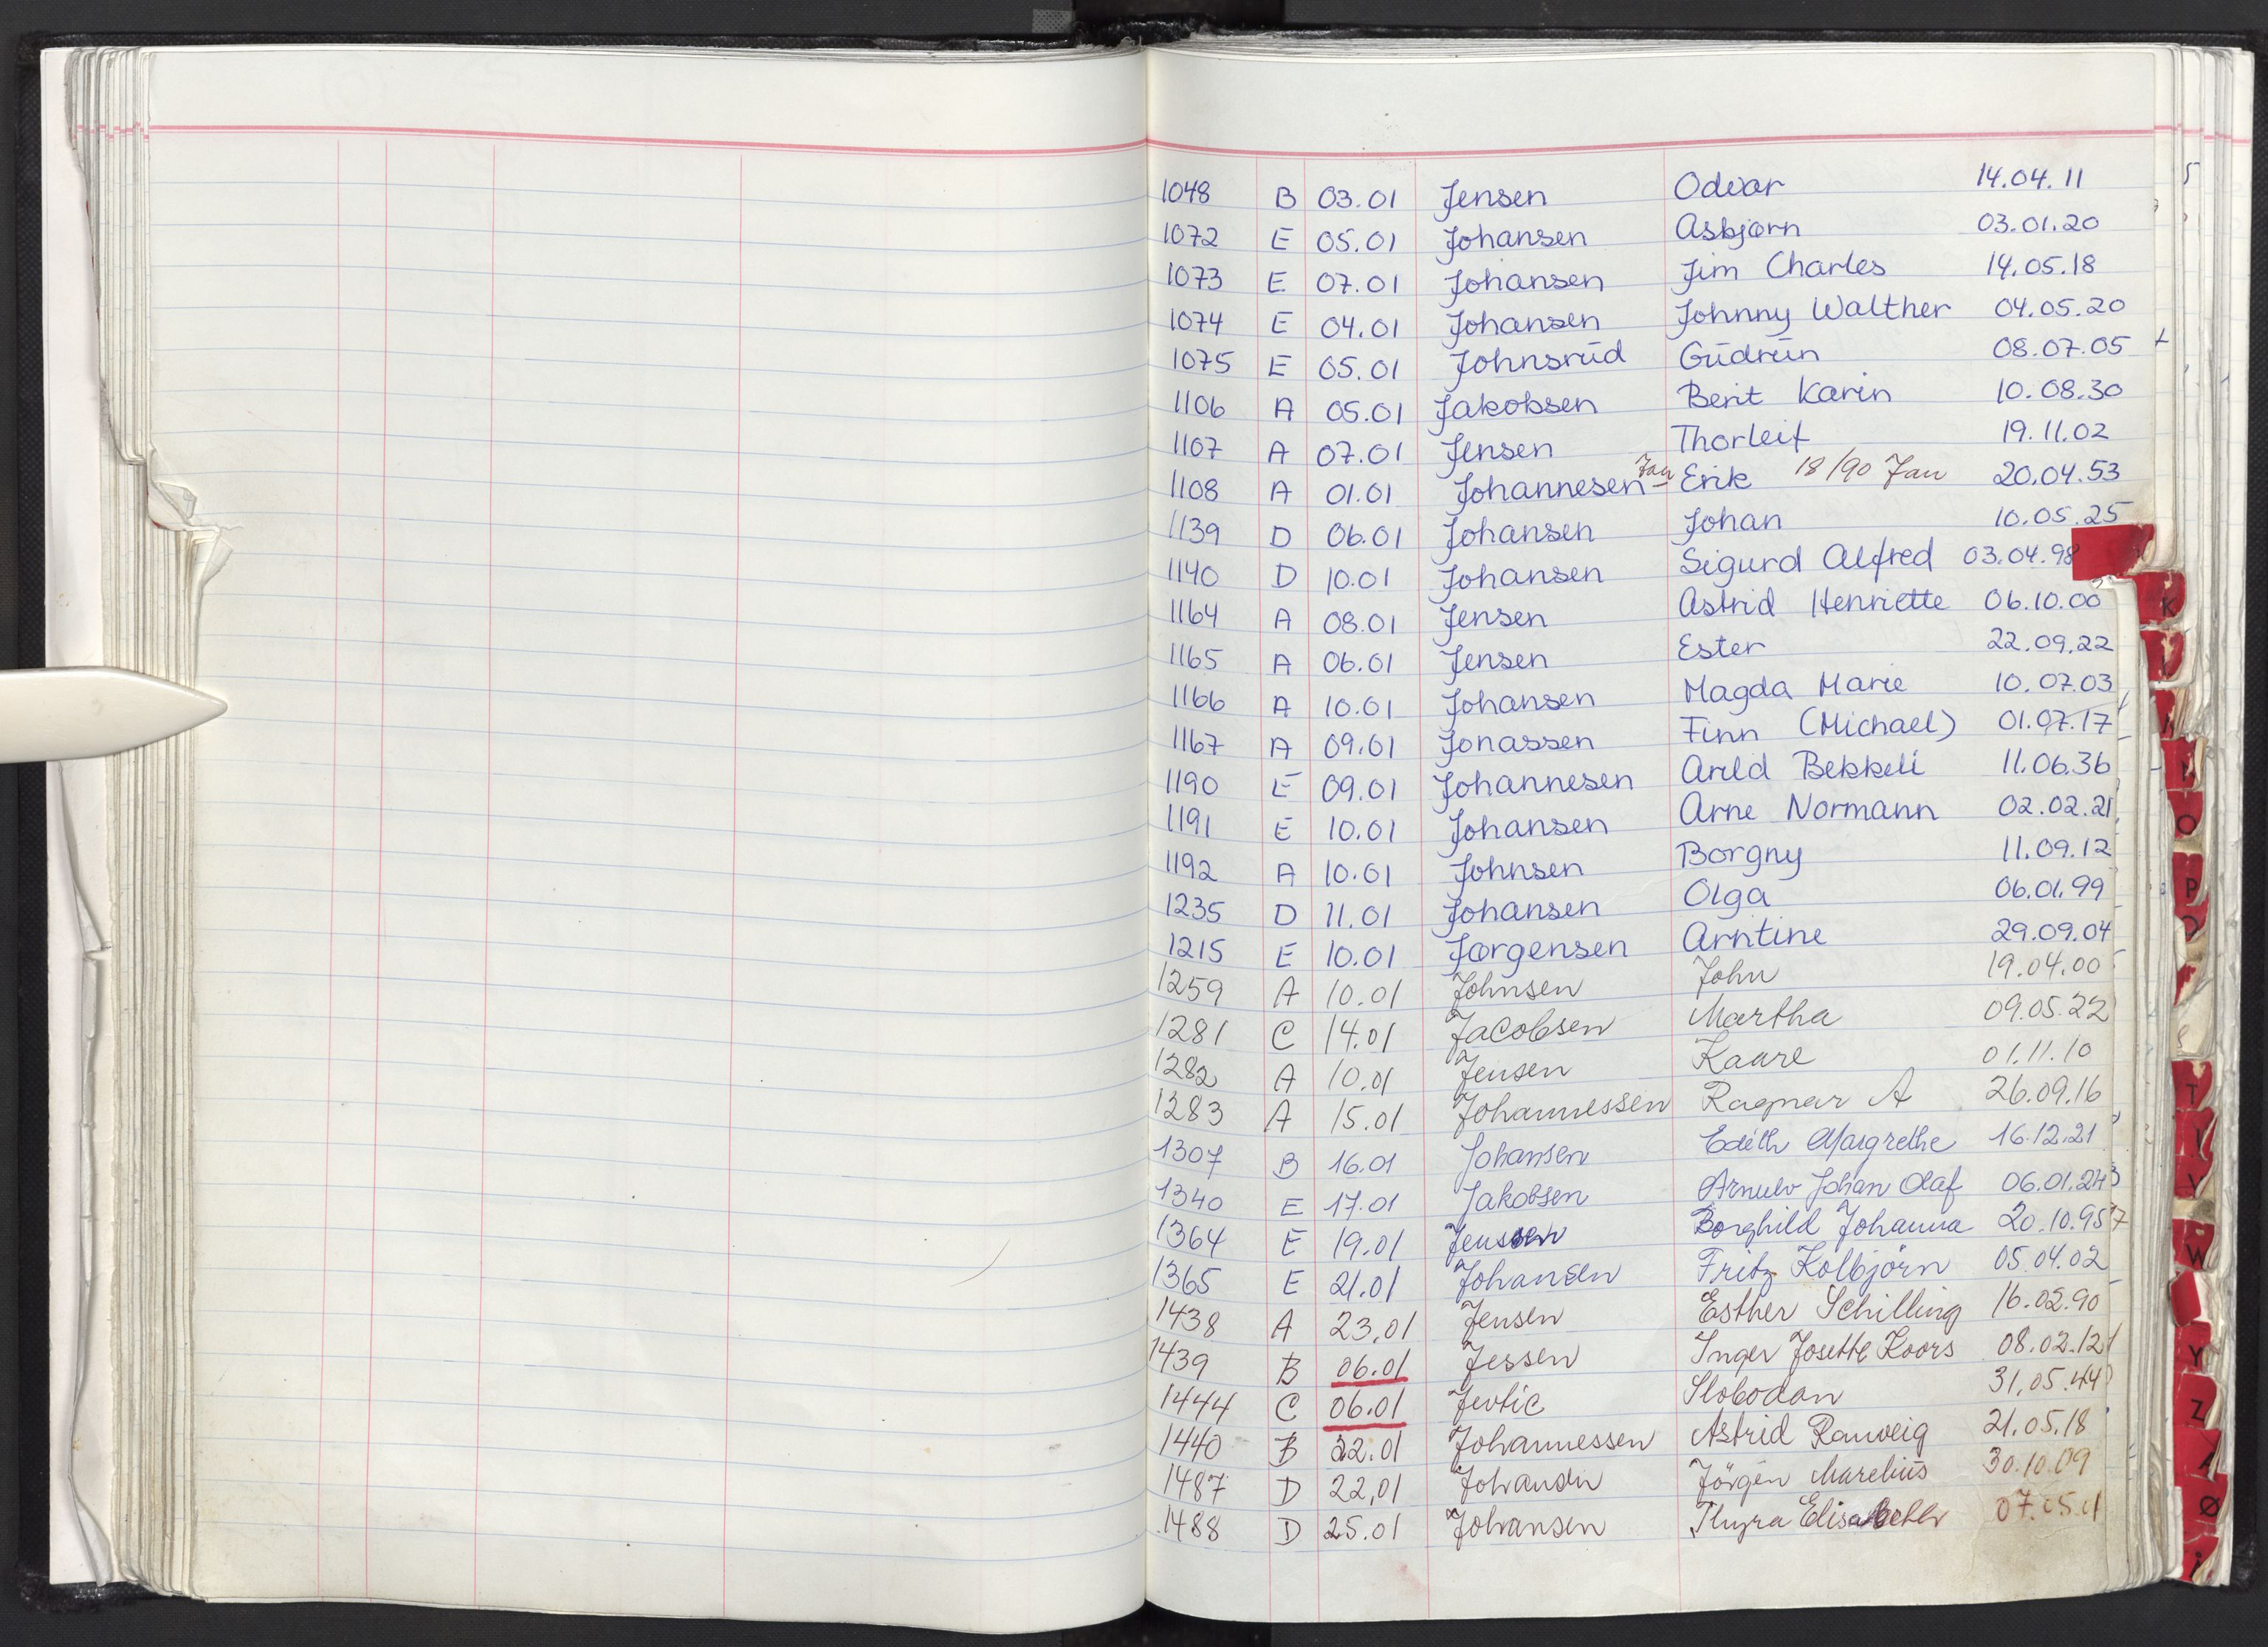 1048 B 03.01 Jensen Odvar 14.04.11
1072 E 05.01 Johansen Asbjørn 03.01.20
1073 E 07.01 Johansen Jim Charles 14.05.18
1074 E 04.01 Johansen Johnny Walther 04.05.20
1075 E 05.01 Johnsrud Gudrun 08.07.05
1106 A 05.01 Jakobsen Berit Karin 10.08.30
1107 A 07.01 Jensen Thorleif 19.11.02
1108 A 01.01 Johannesen Jan- Erik 18/90 Jan 20.04.53
1139 D 06.01 Johansen Johan 10.05.25
1140 D 10.01 Johansen Sigurd Alfred 03.04.98
1164 A 08.01 Jensen Astrid Henriette 06.10.00
1165 A 06.01 Jensen Ester 22.09.22
1166 A 10.01 Johansen Magda Marie 10.07.03
1167 A 09.01 Jonassen Finn (Michael) 01.07.17
1190 E 09.01 Johannesen Arild Bekkeli 11.06.36
1191 E 10.01 Johansen Arne Normann 02.02.21
1192 A 10.01 Johnsen Borgny 11.09.12
1235 D 11.01 Johansen Olga 06.01.99
1215 E 10.01 Jørgensen Arntine 29.09.04
1259 A 10.01 Johnsen John 19.04.00
1281 C 14.01 Jacobsen Martha 09.05.22
1282 A 10.01 Jensen Kaare 01.11.10
1283 A 15.01 Johannessen Ragnar A 26.09.16
1307 B 16.01 Johansen Edith Margrethe 16.12.21
1340 E 17.01 Jakobsen Arnulv Johan Olaf 06.01.24
1364 E 19.01 Jenssen Borghild Johanna 20.10.95
1365 E 21.01 Johansen Fritz Kolbjörn 05.04.02
1438 A 23.01 Jensen Esther Schilling 16.02.90
1439 B 06.01 Jessen Inger Josette Koors 08.02.12
1444 C 06.01 Jevtic Slobodan 31.05.44
1440 B 22.01 Johannessen Astrid Ranveig 21.05.18
1487 D 22.01 Johansen Jörgen Marelius 30.10.09
1488 D 25.01 Johansen Thyra Elisabeth 07.05.01
K
O
P
T
V
W
Y
Z
Ø